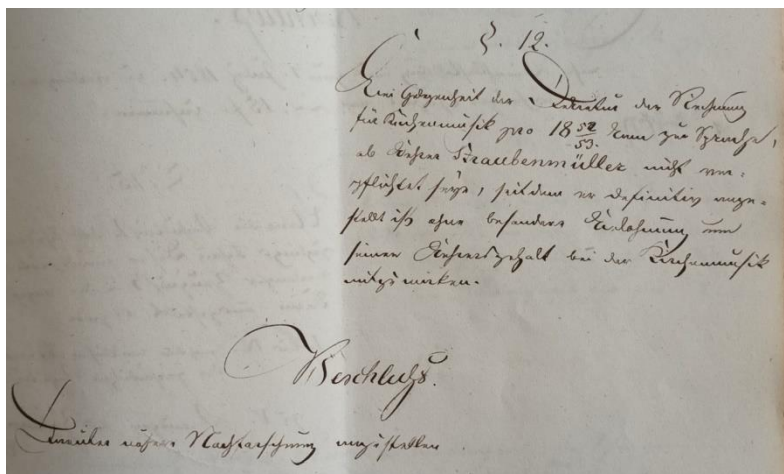 §. 12.
Bei Gelegenheit der Decretur der Rechnung
für Kirchenmusik pro 18 52/53. kam zur Sprache,
ob Lehrer Straubenmüller nicht ver-
pflichtet seye, seitdem er definitiv ange-
stellt ist ohne besondere Belohnung um
seinen Lehrersgehalt bei der Kirchenmusik
mitzuwirken.
Beschluß.
Darüber nähere Nachforschung anzustellen